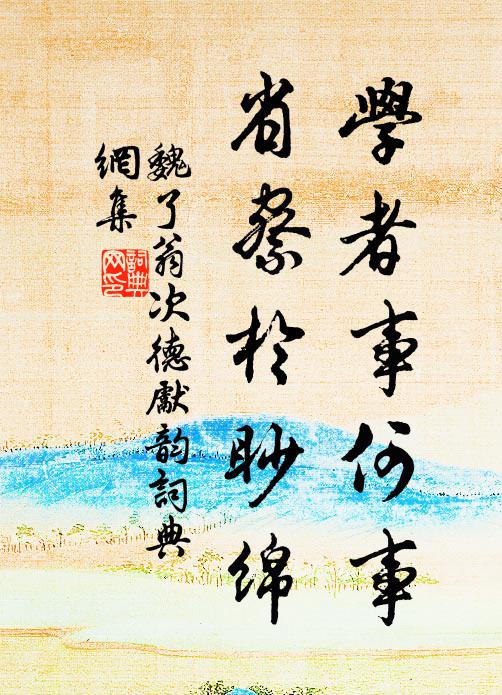 學者事何事
省察於眇綿
魏了翁次德獻韵詞典
網集
詞典
网印